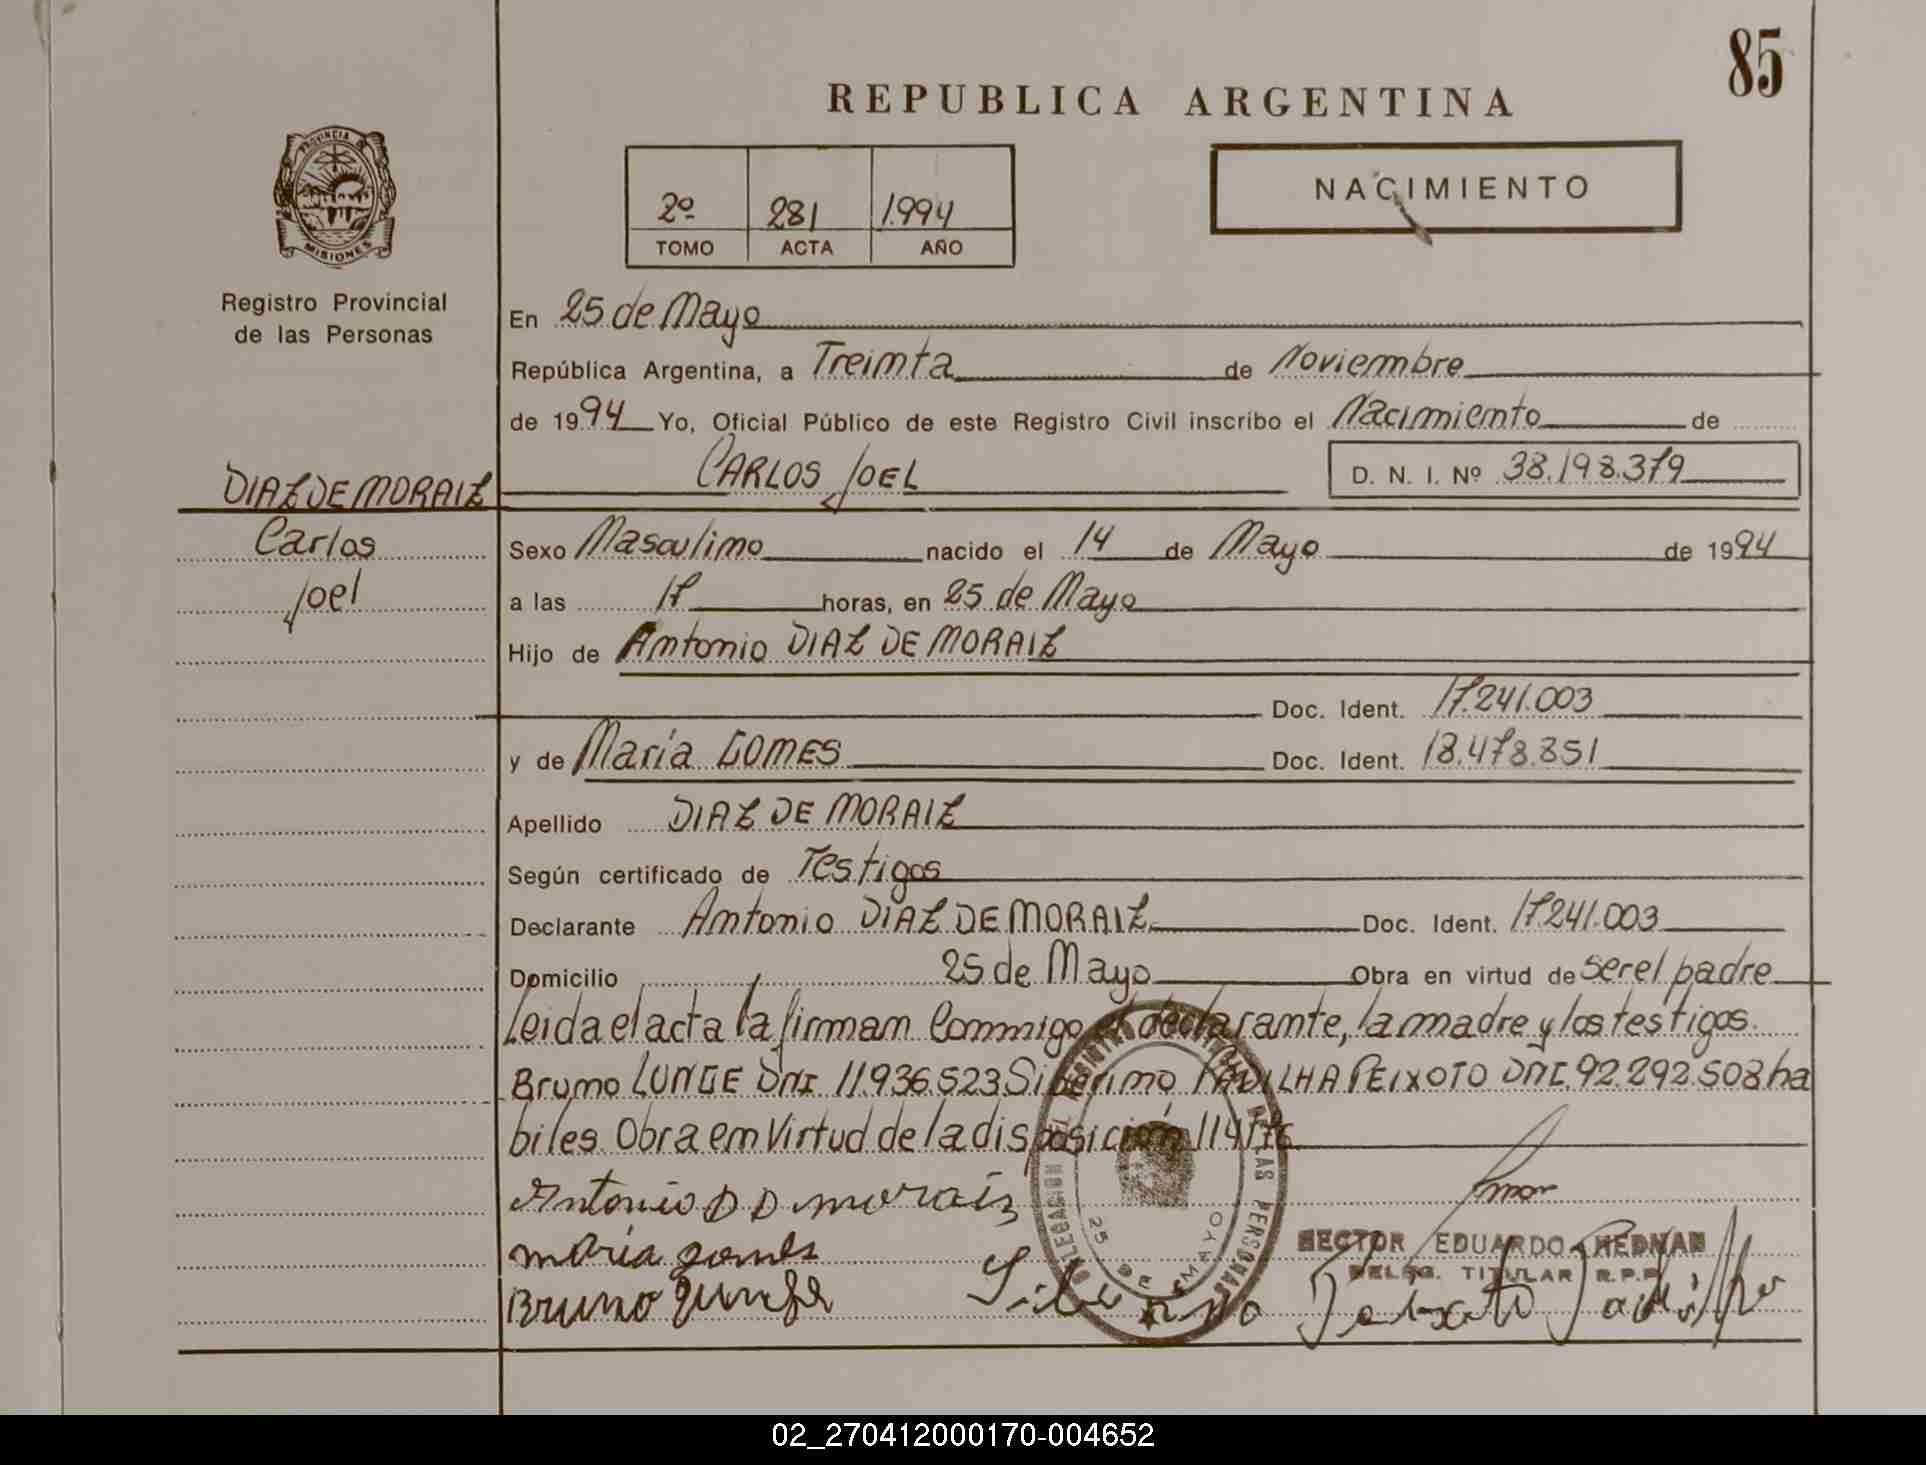 85
REPUBLICA ARGENTINA
PROVINCIA DE
MISIONES
Registro Provincial
de las Personas
2º 281 1.994
TOMO ACTA AÑO
NACIMIENTO
En 25 de Mayo
República Argentina, a Treinta de Noviembre
de 1994 Yo, Oficial Público de este Registro Civil inscribo el Nacimiento de
DIAZ DE MORAIZ CARLOS JOEL D. N. I. Nº 38.198.379
Carlos
Joel
Sexo Masculino nacido el 14 de Mayo de 1994
a las 17 horas, en 25 de Mayo
Hijo de Antonio DIAZ DE MORAIZ
Doc. Ident. 17.241.003
y de María GOMES Doc. Ident. 18.478.851
Apellido DIAZ DE MORAIZ
Según certificado de Testigos
Declarante Antonio DIAZ DE MORAIZ Doc. Ident. 17.241.003
Domicilio 25 de Mayo Obra en virtud de ser el padre
Leida el acta la firman Conmigo el declarante, la madre y los testigos.
Bruno LUNGE DNI 11.936.523 Siberino PADILHA PEIXOTO DNI. 92.292.508 ha
biles. Obra en Virtud de la disposición 114/76
Antonio D D moraiz
maria gomes
Bruno
HECTOR EDUARDO HEDMAN
DELEG. TITULAR R.P.P.
25 DE MAYO
02_270412000170-004652